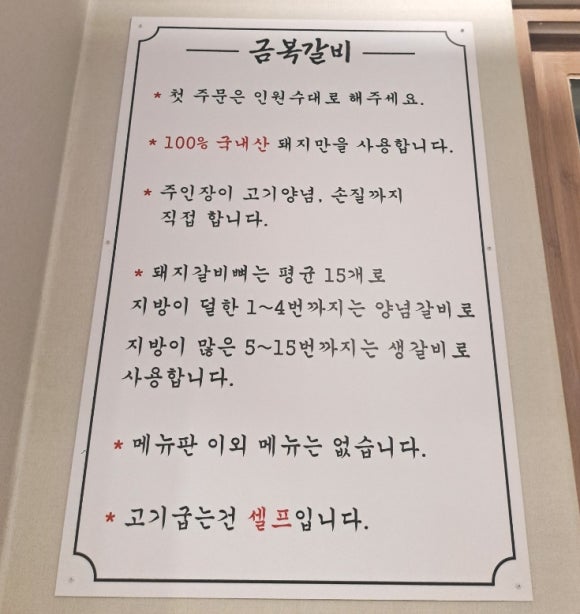 금복갈비
* 첫 주문은 인원수대로 해주세요.
* 100% 국내산 돼지만을 사용합니다.
* 주인장이 고기양념, 손질까지
직접 합니다.
* 돼지갈비뼈는 평균 15개로
지방이 덜한 1~4번까지는 양념갈비로
지방이 많은 5~15번까지는 생갈비로
사용합니다.
* 메뉴판 이외 메뉴는 없습니다.
* 고기굽는건 셀프입니다.